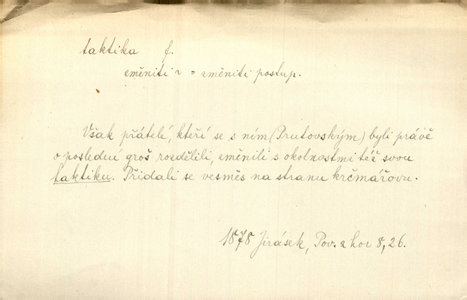 taktika f.
změniti t = změniti postup.
Však přátelé, kteří se s ním (Prutovským) byli právě
o poslední groš rozdělili, změnili s okolnostmi též svou
taktiku. Přidali se vesměs na stranu krčmářovu.
1878 Jirásek, Pov. z hor 8, 26.